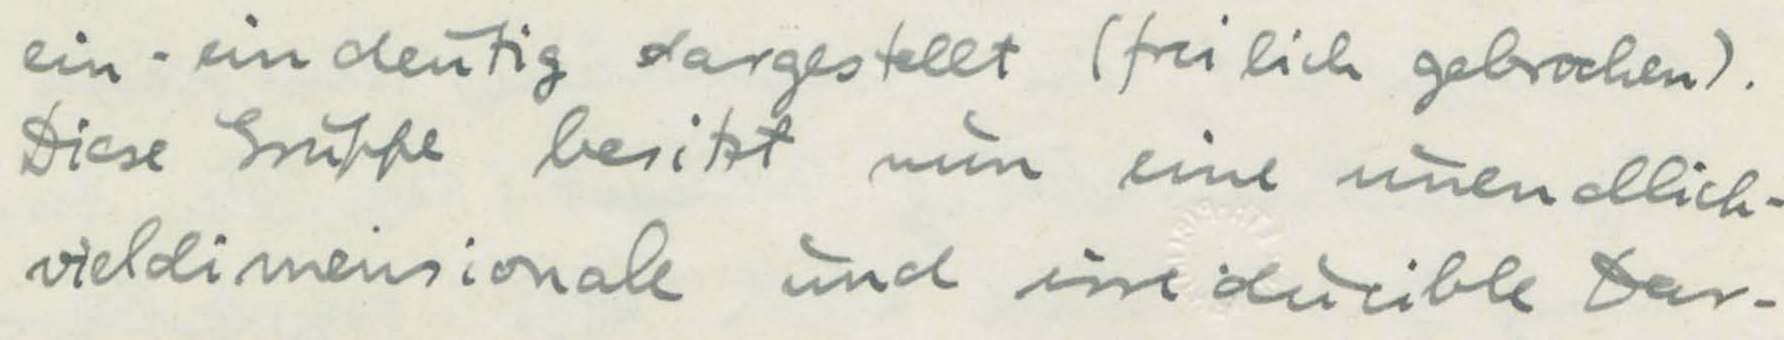 ein-eindeutig dargestellt (freilich gebrochen).
Diese Gruppe besitzt nun eine unendlich-
vieldimensionale und irreducible Dar-